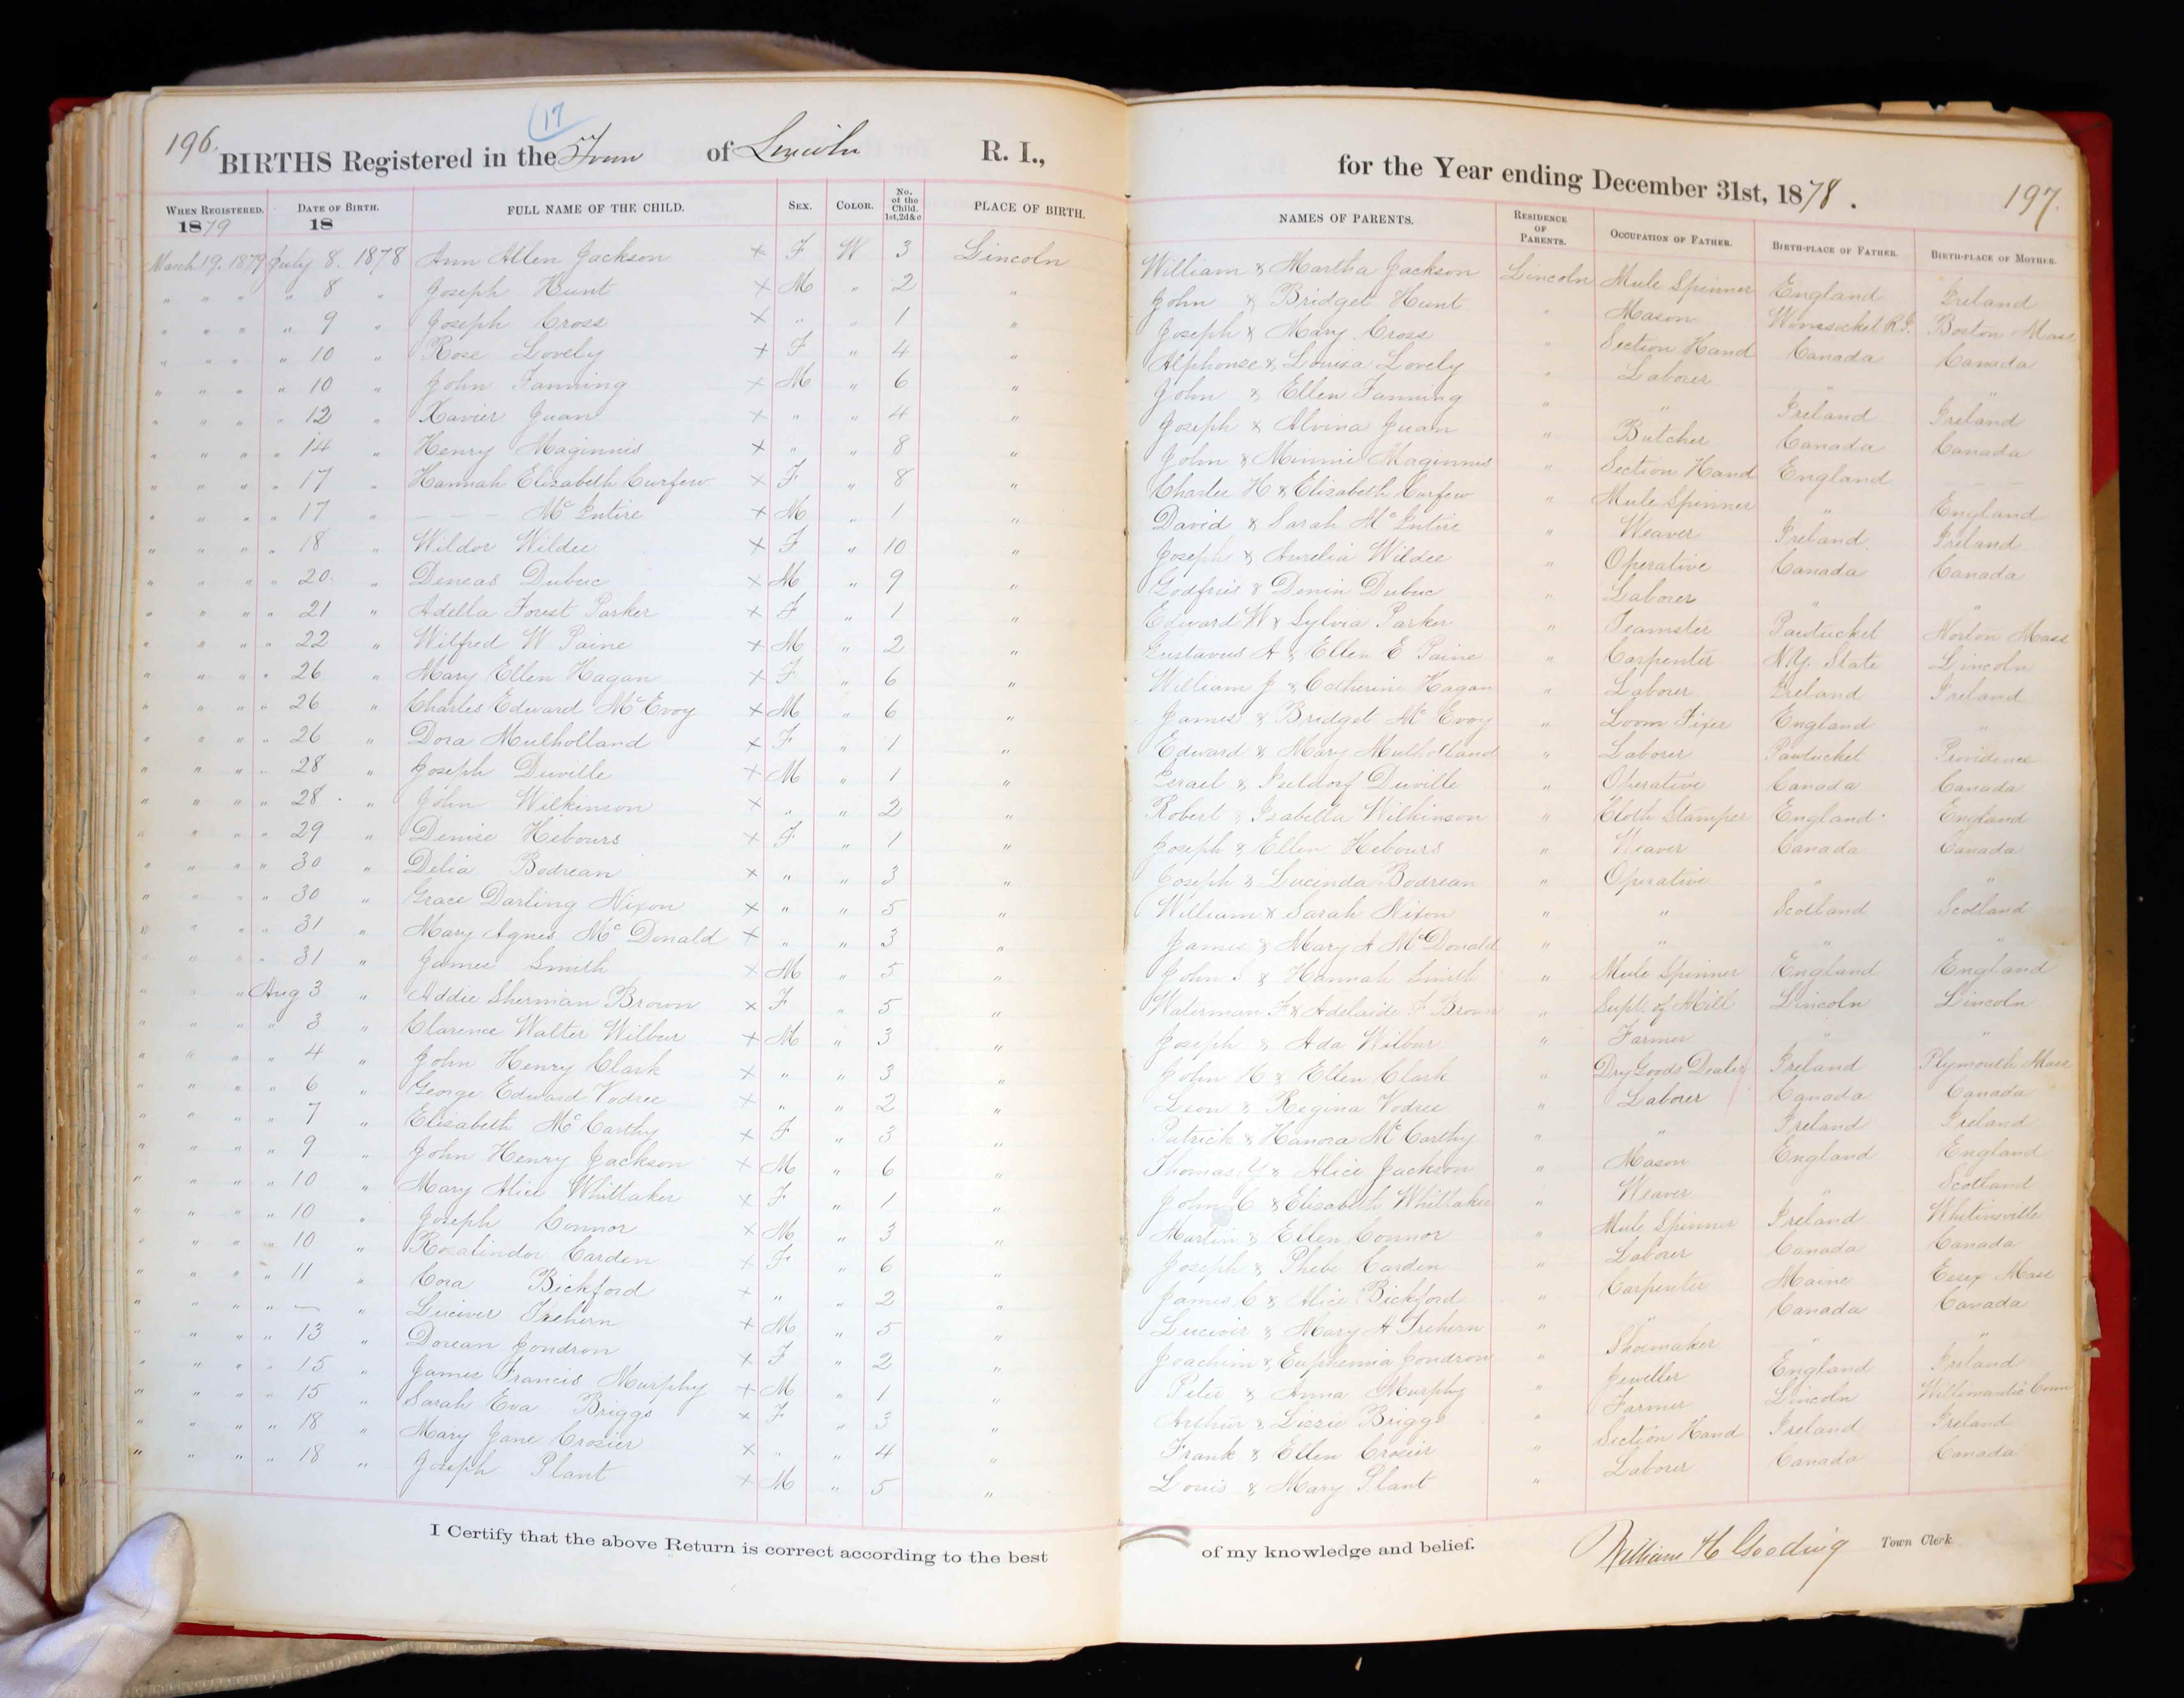 196.
(17
BIRTHS Registered in the Town of Lincoln R. I.,
WHEN REGISTERED. DATE OF BIRTH. FULL NAME OF THE CHILD. SEX. COLOR. No. of the Child. 1st,2d&c PLACE OF BIRTH.
1879 18
March 19. 1879 July 8. 1878 Ann Allen Jackson × F W 3 Lincoln
" " " " 8 " Joseph Hunt × M " 2 "
" " " " 9 " Joseph Cross × " " 1 "
" " " " 10 " Rose Lovely × F " 4 "
" " " " 10 " John Fanning × M " 6 "
" " " " 12 " Xavier Juan × " " 4 "
" " " " 14 " Henry Maginnis × " " 8 "
" " " " 17 " Hannah Elizabeth Curfew × F " 8 "
" " " " 17 " — — — McIntire × M " 1 "
" " " " 18 " Wildor Wildee × F " 10 "
" " " " 20. " Deneas Dubuc × M " 9 "
" " " " 21 " Adella Forest Parker × F " 1 "
" " " " 22 " Wilfred W Paine × M " 2 "
" " " " 26 " Mary Ellen Hagan × F " 6 "
" " " " 26 " Charles Edward McEvoy × M " 6 "
" " " " 26 " Dora Mulholland × F " 1 "
" " " " 28 " Joseph Duville × M " 1 "
" " " " 28 " John Wilkinson × " " 2 "
" " " " 29 " Denise Hebours × F " 1 "
" " " " 30 " Delia Bodrean × " " 3 "
" " " " 30 " Grace Darling Nixon × " " 5 "
" " " " 31 " Mary Agnes McDonald × " " 3 "
" " " " 31 " James Smith × M " 5 "
" " " Aug 3 " Addie Sherman Brown × F " 5 "
" " " " 3 " Clarence Walter Wilbur × M " 3 "
" " " " 4 " John Henry Clark × " " 3 "
" " " " 6 " George Edward Vodree × " " 2 "
" " " " 7 " Elizabeth McCarthy × F " 3 "
" " " " 9 " John Henry Jackson × M " 6 "
" " " " 10 " Mary Alice Whittaker × F " 1 "
" " " " 10 " Joseph Connor × M " 3 "
" " " " 10 " Rosalindor Carden × F " 6 "
" " " " 11 " Cora Bickford × " " 2 "
" " " " — " Luciver Trehern × M " 5 "
" " " " 13 " Dorean Gondron × F " 2 "
" " " " 15 " James Francis Murphy × M " 1 "
" " " " 15 " Sarah Eva Briggs × F " 3 "
" " " " 18 " Mary Jane Crosier × " " 4 "
" " " " 18 " Joseph Plant × M " 5 "
I Certify that the above Return is correct according to the best
for the Year ending December 31st, 1878.
197.
NAMES OF PARENTS. RESIDENCE OF PARENTS. OCCUPATION OF FATHER. BIRTH-PLACE OF FATHER. BIRTH-PLACE OF MOTHER.
William & Martha Jackson Lincoln Mule Spinner England Ireland
John & Bridget Hunt " Mason Woonsocket R.I. Boston Mass
Joseph & Mary Cross " Section Hand Canada Canada
Alphonse & Louisa Lovely " Laborer " "
John & Ellen Fanning " " Ireland Ireland
Joseph & Alvina Juan " Butcher Canada Canada
John & Minnie Maginnis " Section Hand England
Charles H & Elizabeth Curfew " Mule Spinner " England
David & Sarah McIntire " Weaver Ireland Ireland
Joseph & Aurelia Wildee " Operative Canada Canada
Godfrius & Denin Dubuc " Laborer " "
Edward W & Sylvia Parker " Teamster Pawtucket Norton Mass
Gustavus A & Ellen E Paine " Carpenter N.Y. State Lincoln
William J & Catherine Hagan " Laborer Ireland Ireland
James & Bridget McEvoy " Loom Fixer England "
Edward & Mary Mulholland " Laborer Pawtucket Providence
Israel & Duville " Operative Canada Canada
Robert & Isabella Wilkinson " Cloth Stamper England England
Joseph & Ellen Hebours " Weaver Canada Canada
Joseph & Lucinda Bodrean " Operative " "
William & Sarah Nixon " " Scotland Scotland
James & Mary A McDonald " " " "
John S & Hannah Smith " Mule Spinner England England
Waterman F & Adelaide F Brown " Supt. of Mill Lincoln Lincoln
Joseph & Ada Wilbur " Farmer " "
John H & Ellen Clark " Dry Goods Dealer Ireland Plymouth Mass
Leon & Regina Vodree " Laborer Canada Canada
Patrick & Hanora McCarthy " " Ireland Ireland
Thomas Y & Alice Jackson " Mason England England
John C & Elizabeth Whittaker " Weaver " Scotland
Martin & Ellen Connor " Mule Spinner Ireland Whitinsville
Joseph & Phebe Carden " Laborer Canada Canada
James C & Alice Bickford " Carpenter Maine Essex Mass
Lucivir & Mary A Trehern " " Canada Canada
Joachim & Euphemia Gondron " Shoemaker " "
Peter & Anna Murphy " Jeweller England Ireland
Arthur & Lizzie Briggs " Farmer Lincoln Willimantic Conn
Frank & Ellen Crosier " Section Hand Ireland Ireland
Louis & Mary Plant " Laborer Canada Canada
of my knowledge and belief. William H Gooding Town Clerk